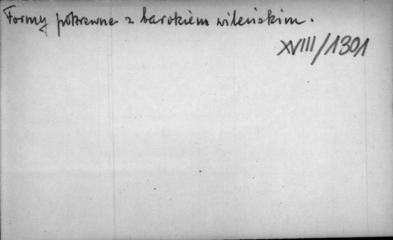 Formy pokrewne z barokiem wileńskim.
XVIII/1301